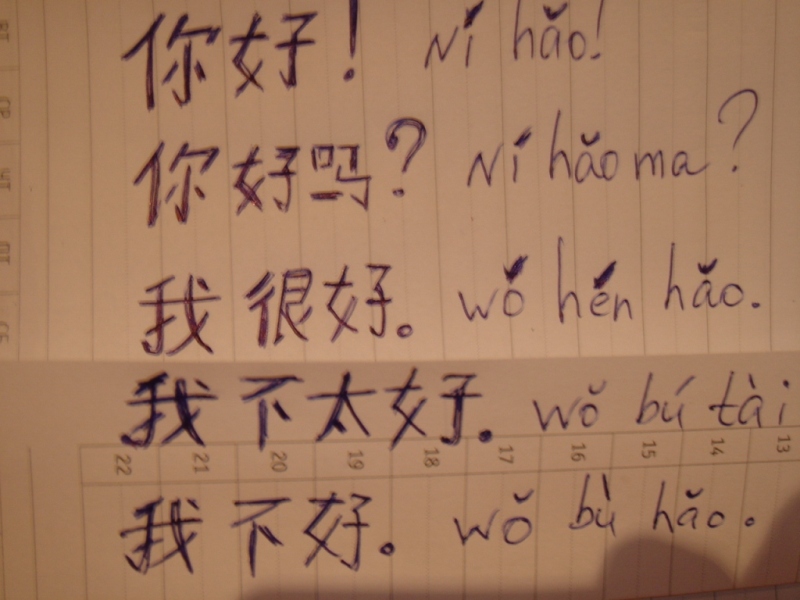 你好! Ní hǎo!
你好吗? Ní hǎo ma?
我很好。 wó hén hǎo.
我不太好。 wǒ bú tài
22 21 20 19 18 17 16 15 14 13
我不好。 wǒ bù hǎo。